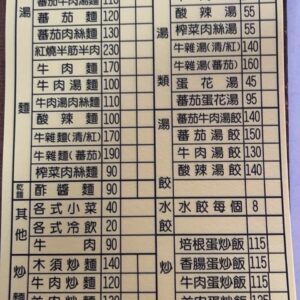 湯麵
番茄牛肉湯麵 110
番茄麵 120
番茄肉絲麵 130
紅燒半筋半肉 230
牛肉麵 170
牛肉湯麵 100
牛肉湯肉絲麵 110
酸辣麵 100
牛雜麵(清/紅) 170
牛雜麵(番茄) 190
榨菜肉絲麵 90
乾麵
酢醬麵 90
其他
各式小菜 40
各式冷飲 20
牛肉 90
炒麵
木須炒麵 140
湯類
酸辣湯 55
榨菜肉絲湯 55
牛雜湯(清/紅) 140
牛雜湯(番茄) 160
蛋花湯 45
番茄蛋花湯 95
湯餃
番茄牛肉湯餃 140
番茄湯餃 150
牛肉湯餃 130
酸辣湯餃 130
水餃
水餃每個 8
炒
培根蛋炒飯 115
香腸蛋炒飯 115
蝦仁蛋炒飯 115